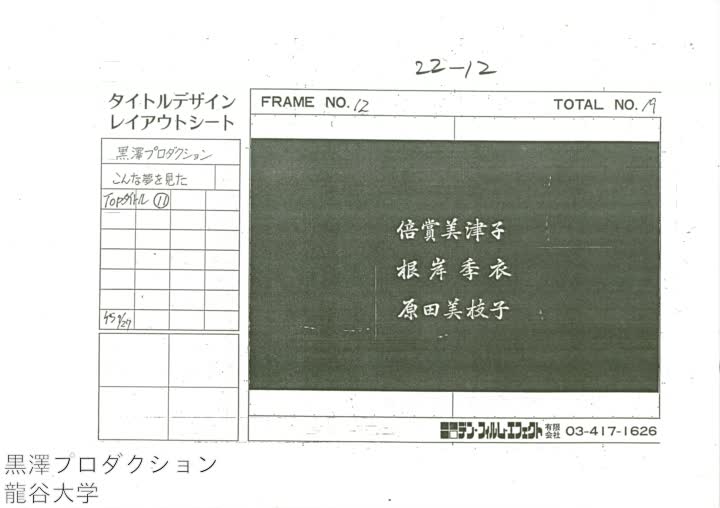 22-12
タイトルデザイン
レイアウトシート
FRAME NO. 12
TOTAL NO. 19
黒澤プロダクション
こんな夢を見た
Topタイトル ⑪
倍賞美津子
根岸季衣
原田美枝子
デン・フィルム・エフェクト 有限会社 03-417-1626
黒澤プロダクション
龍谷大学